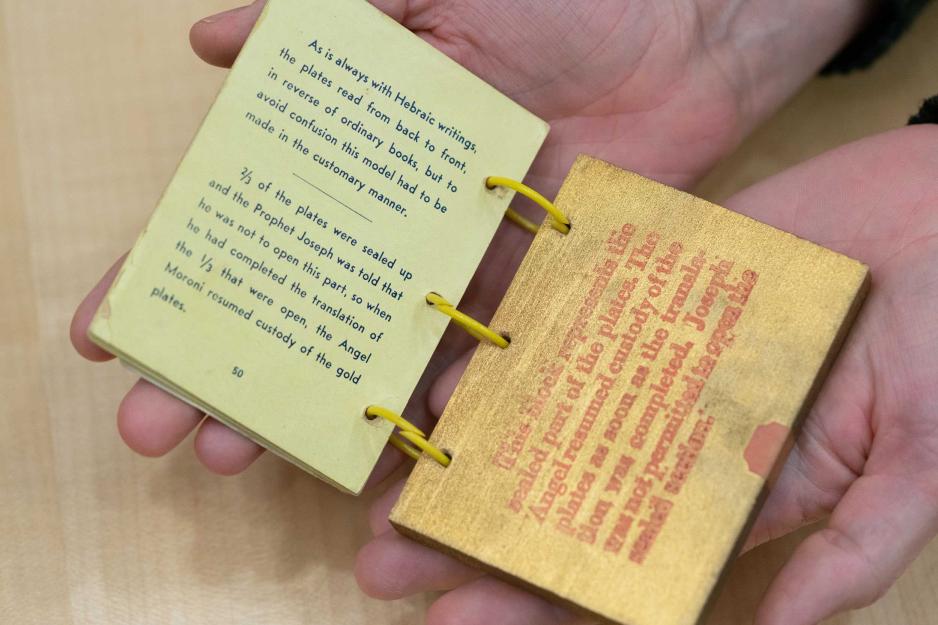 As is always with Hebraic writings,
the plates read from back to front,
in reverse of ordinary books, but to
avoid confusion this model had to be
made in the customary manner.
⅔ of the plates were sealed up
and the Prophet Joseph was told that
he was not to open this part, so when
he had completed the translation of
the ⅓ that were open, the Angel
Moroni resumed custody of the gold
plates.
50
This block represents the
sealed part of the plates. The
Angel resumed custody of the
plates as soon as the transla-
tion was completed. Joseph
was not permitted to open the
sealed section.